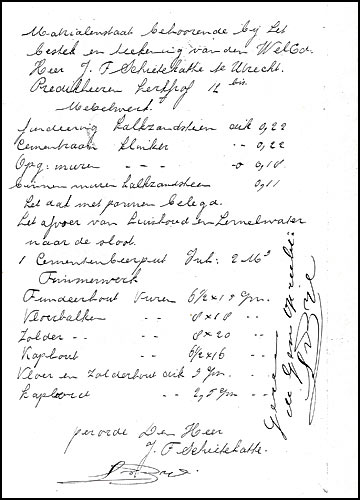 Matrialenstaat behoorende bij het
bestek en teekening van den WelEd.
Heer J. F Schietekatte te Utrecht.
Predikheeren kerkhof 12 bis.
Metselwerk.
fundeering kalkzandsteen dik 0,22
Cementraam klinker -- 0,22
Opg: muren - - - - 0,18
binnen muren kalkzandsteen 0,11
het dak met pannen belegd.
het afvoer van huishoud en hemelwater
naar de sloot.
1 Cementen beerput Inh: 2 M3
Timmerwerk
Fundeerhout vuren 6½ x 19 cm.
Vloerbalken -- 8 x 18 --
Zolder -- -- 8 x 20 --
Kaphout -- 6½ x 16 --
Vloer en Zolderhout dik 2 cm. --
kaphout -- 2,5 cm --
Den Heer
J. F Schietekatte.
Gezien